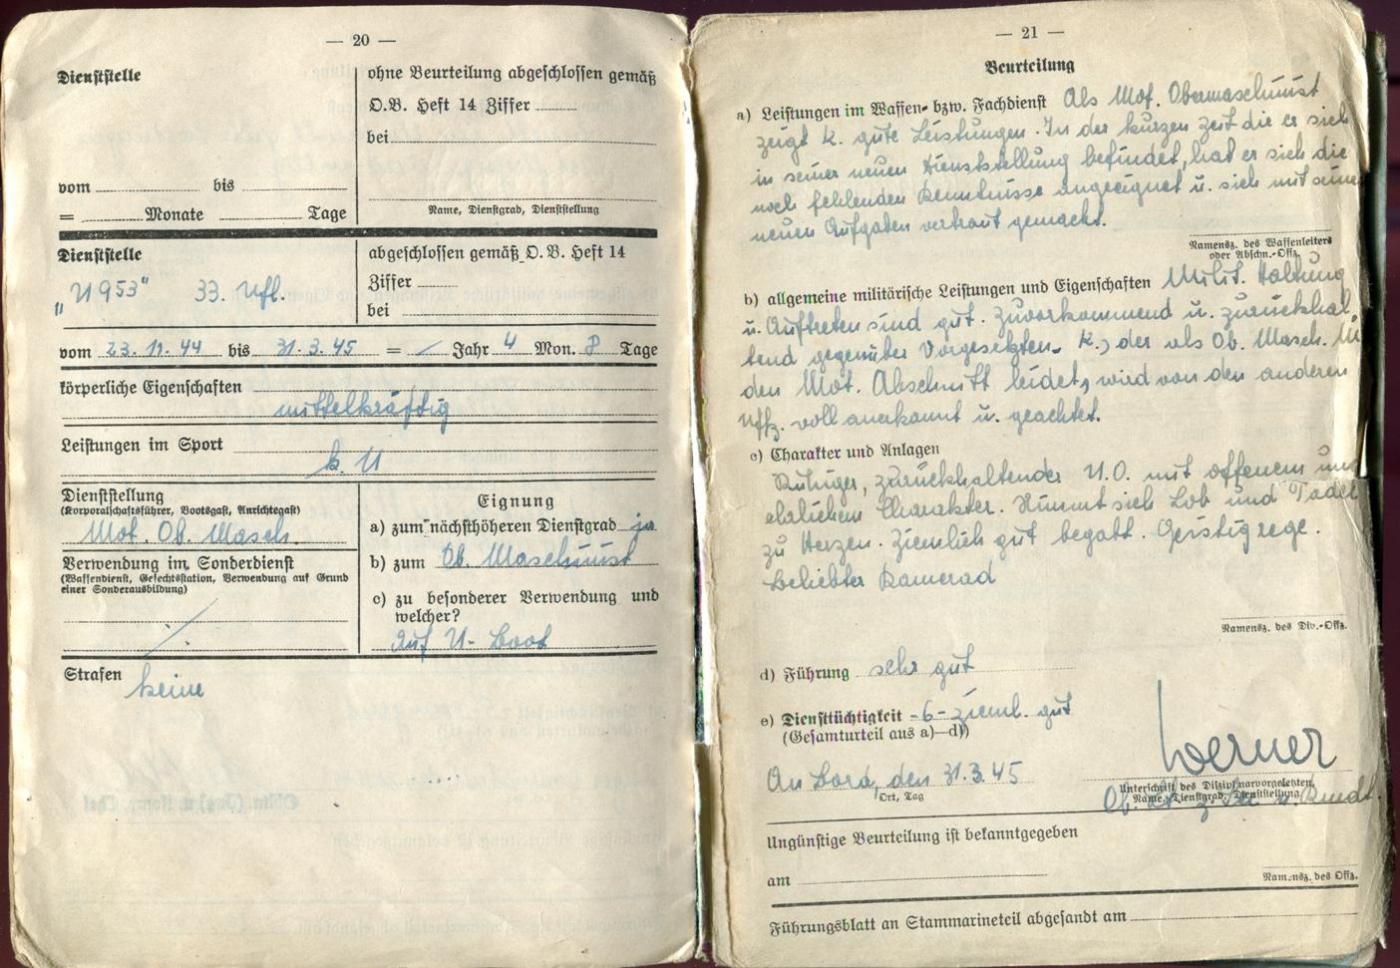 — 20 —
Dienststelle
ohne Beurteilung abgeschlossen gemäß
O.B. Heft 14 Ziffer
bei
vom bis
= Monate Tage
Name, Dienstgrad, Dienststellung
Dienststelle
"U 953" 33. Ufl.
abgeschlossen gemäß O.B. Heft 14
Ziffer
bei
vom 23.11.44 bis 31.3.45 = / Jahr 4 Mon. 8 Tage
körperliche Eigenschaften
mittelkräftig
Leistungen im Sport
k. U
Dienststellung
(Korporalschaftsführer, Bootsgast, Anrichtegast)
Mot. Ob. Masch.
Verwendung im Sonderdienst
(Waffendienst, Gefechtsstation, Verwendung auf Grund
einer Sonderausbildung)
/
Eignung
a) zum nächsthöheren Dienstgrad ja
b) zum Ob. Maschinist
c) zu besonderer Verwendung und
welcher?
Auf U-Boot
Strafen
keine
— 21 —
Beurteilung
a) Leistungen im Waffen- bzw. Fachdienst Als Mot. Obermaschinist
zeigt K. gute Leistungen. In der kurzen Zeit die er sich
in seiner neuen Dienststellung befindet, hat er sich die
noch fehlenden Kenntnisse angeeignet u. sich mit seinen
neuen Aufgaben vertraut gemacht.
Namensz. des Waffenleiters
oder Abschn.-Offz.
b) allgemeine militärische Leistungen und Eigenschaften Milit. Haltung
u. Auftreten sind gut. Zuvorkommend u. zurückhal-
tend gegenüber Vorgesetzten. K., der als Ob. Masch.
den Mot. Abschnitt leidet, wird von den anderen
Uffz. voll anerkannt u. geachtet.
c) Charakter und Anlagen
Ruhiger, zurückhaltender U.O. mit offenem und
ehrlichem Charakter. Nimmt sich Lob und Tadel
zu Herzen. Ziemlich gut begabt. Geistig rege.
Beliebter Kamerad
Namensz. des Div.-Offz.
d) Führung sehr gut
e) Diensttüchtigkeit -6- zieml. gut
(Gesamturteil aus a)—d))
Werner
An Bord, den 31.3.45
Ort, Tag
Unterschrift des Disziplinarvorgesetzten,
Name, Dienstgrad, Dienststellung
Ungünstige Beurteilung ist bekanntgegeben
am
Namensz. des Offz.
Führungsblatt an Stammarineteil abgesandt am